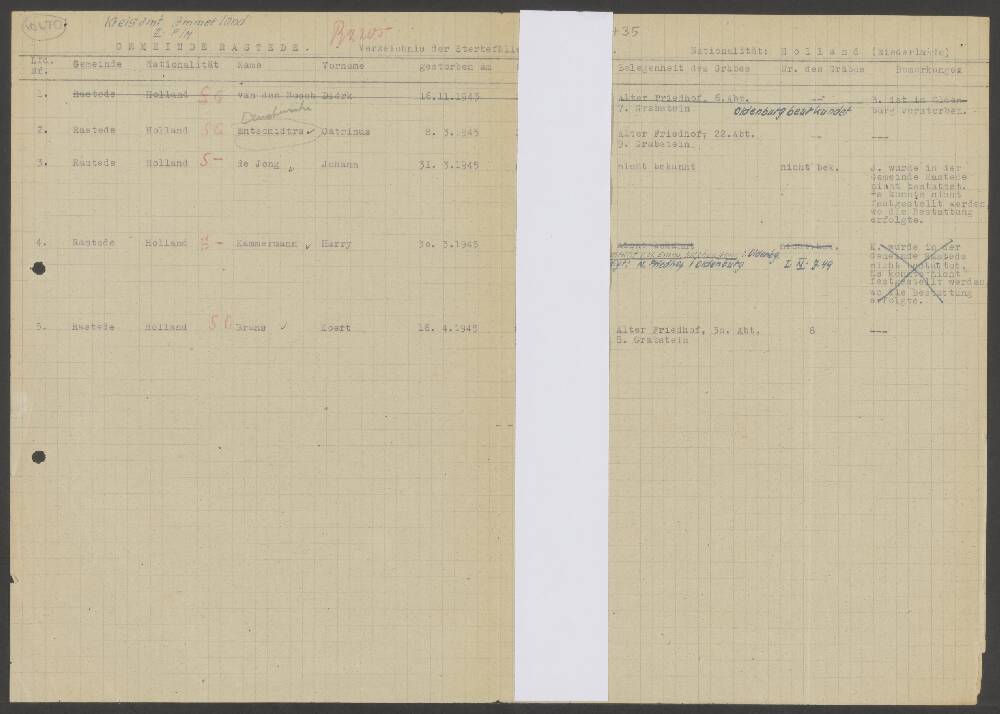 Kreisamt Ammerland
GEMEINDE RASTEDE. Verzeichnis der Sterbefälle Nationalität: Holland (Niederlande)
Lfd. Nr. Gemeinde Nationalität Name Vorname gestorben am Belegenheit des Grabes Nr. des Grabes Bemerkungen
1. Rastede Holland SG van den Bosch Dierk 16.11.1943 Alter Friedhof, 6.Abt. -- B. ist in Olden-
7. Grabstein Oldenburg beurkundet burg verstorben.
2. Rastede Holland SG Entschidtra Catrinus 8. 3.1945 Alter Friedhof, 22.Abt. -- ---
9. Grabstein
3. Rastede Holland S- de Jong Johann 31. 3.1945 nicht bekannt nicht bek. J. wurde in der
Gemeinde Rastede
nicht bestattet.
Es konnte nicht
festgestellt werden,
wo die Bestattung
erfolgte.
4. Rastede Holland S- Kammermann Harry 30. 3.1945 nicht bekannt nicht bek. K. wurde in der
N. Friedhof Oldenburg Gemeinde Rastede
nicht bestattet.
Es konnte nicht
festgestellt werden
wo die Bestattung
erfolgte.
5. Rastede Holland SG Bruns Koert 16. 4.1945 Alter Friedhof, 30. Abt. 6 ---
5. Grabstein